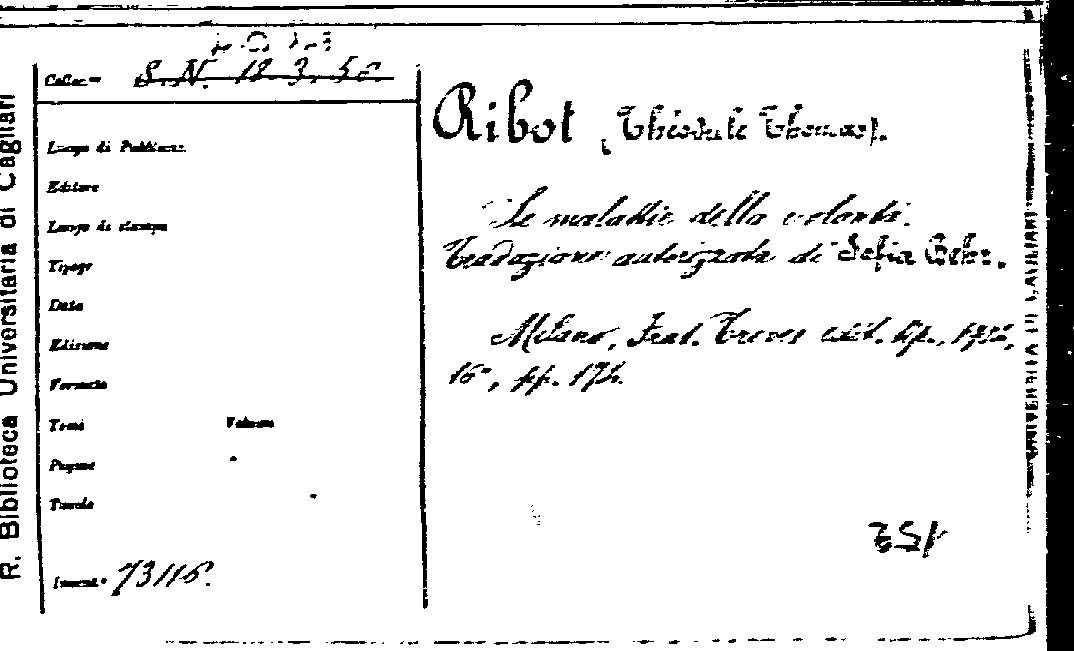 R. Biblioteca Universitaria di Cagliari
Colloc.ne S.N. 18.3.56.
Luogo di Pubblicaz.
Editore
Luogo di stampa
Tipogr
Data
Edizione
Formato
Tomi Volumi
Pagine
Tavole
Invent.o 73116.
Ribot (Théodule Thomas).
Le malattie della volontà.
Traduzione autorizzata di Sofia
Milano, Frat. Treves edit. tip.,
16°, pp. 174.
UNIVERSITA DI CAGLIARI